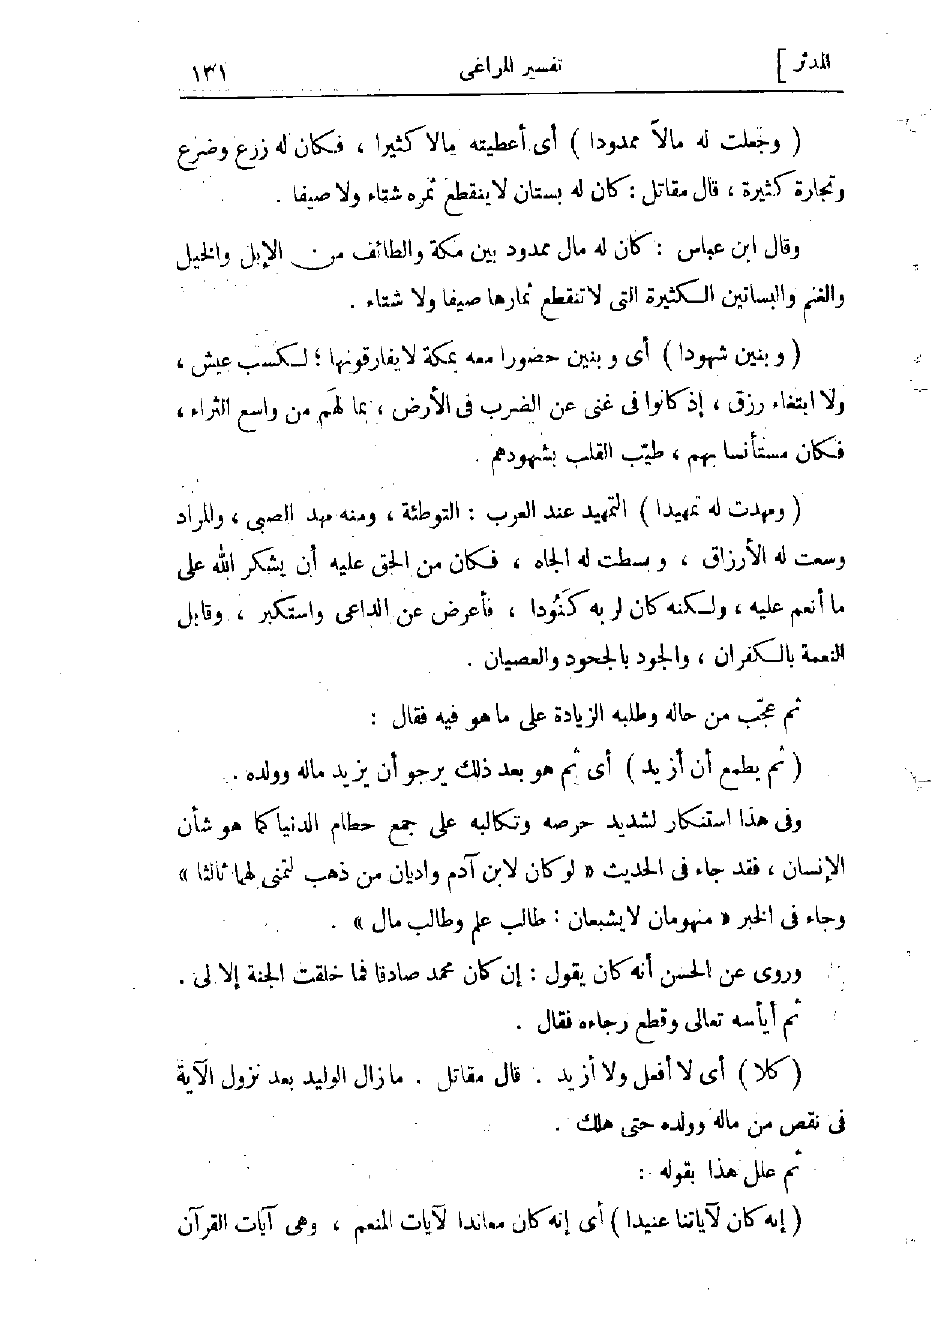 المدثر ]
تفسير المراغى
١٣١
( وجعلت له مالاً ممدودا ) أى أعطيته مالا كثيرا ، فكان له زرع وضرع
وتجارة كثيرة ، قال مقاتل : كان له بستان لاينقطع ثمره شتاء ولا صيفا .
وقال ابن عباس : كان له مال ممدود بين مكة والطائف من الإبل والخيل
والغنم والبساتين الكثيرة التى لاتنقطع ثمارها صيفا ولا شتاء .
( وبنين شهودا ) أى وبنين حضورا معه بمكة لايفارقونها ؛ لكسب عيش ،
ولا ابتغاء رزق ، إذ كانوا فى غنى عن الضرب فى الأرض ، بما لهم من واسع الثراء ،
فكان مستأنسا بهم ، طيّب القلب بشهودهم .
( ومهدت له تمهيدا ) التمهيد عند العرب : التوطئة ، ومنه مهد الصبى ، والمراد
وسعت له الأرزاق ، وبسطت له الجاه ، فكان من الحق عليه أن يشكر الله على
ما أنعم عليه ، ولكنه كان لربه كَنُودا ، فأعرض عن الداعى واستكبر ، وقابل
النعمة بالكفران ، والجود بالجحود والعصيان .
ثم عجّب من حاله وطلبه الزيادة على ما هو فيه فقال :
( ثم يطمع أن أزيد ) أى ثم هو بعد ذلك يرجو أن يزيد ماله وولده .
وفى هذا استنكار لشديد حرصه وتكالبه على جمع حطام الدنيا كما هو شأن
الإنسان ، فقد جاء فى الحديث « لو كان لابن آدم واديان من ذهب لتمنى لهما ثالثا »
وجاء فى الخبر « منهومان لايشبعان : طالب علم وطالب مال » .
وروى عن الحسن أنه كان يقول : إن كان محمد صادقا فما خلقت الجنة إلا لى .
ثم أيأسه تعالى وقطع رجاءه فقال .
( كلا ) أى لا أفعل ولا أزيد . قال مقاتل . مازال الوليد بعد نزول الآية
فى نقص من ماله وولده حتى هلك .
ثم علل هذا بقوله :
( إنه كان لآياتنا عنيدا ) أى إنه كان معاندا لآيات المنعم ، وهى آيات القرآن